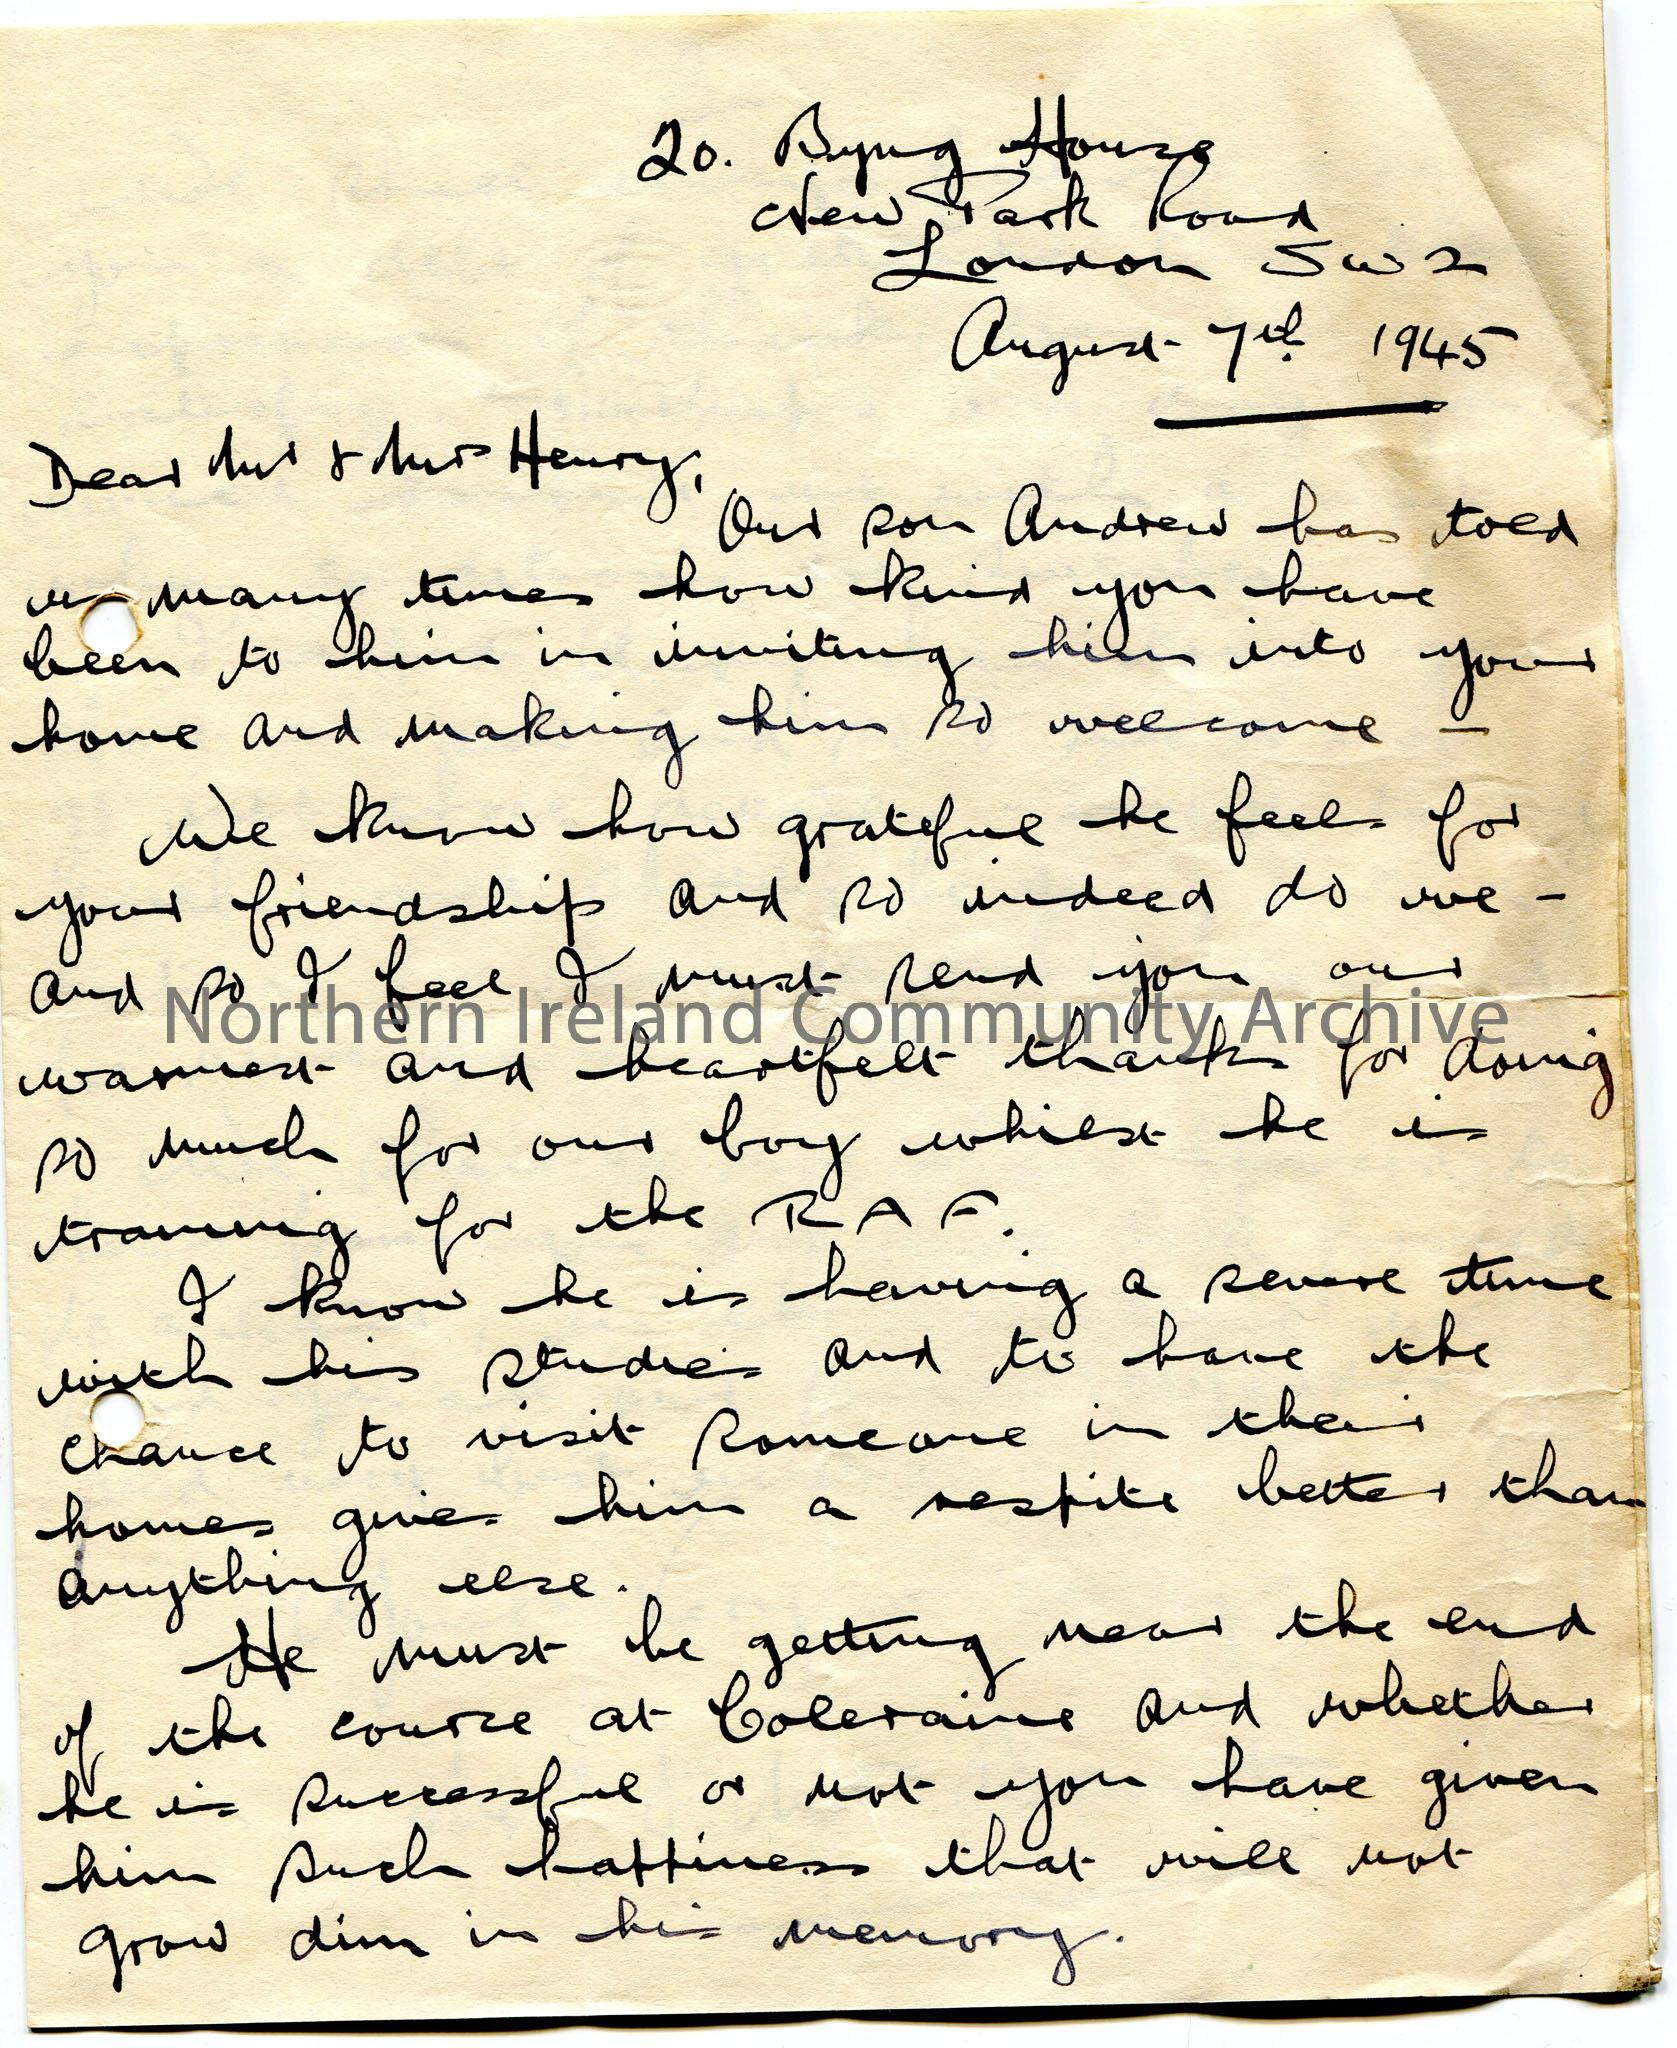 20. Byng House
New Park Road
London SW2
August 7th 1945
Dear Mr & Mrs Henry,
Our son Andrew has told
us many times how kind you have
been to him in inviting him into your
home and making him so welcome —
We know how grateful he feels for
your friendship and so indeed do we —
and so I feel I must send you our
Northern Ireland Community Archive
warmest and heartfelt thanks for doing
so much for our boy whilst he is
training for the RAF.
I know he is having a severe time
with his studies and to have the
chance to visit someone in their
homes gives him a respite better than
anything else.
He must be getting near the end
of the course at Coleraine and whether
he is successful or not you have given
him such happiness that will not
grow dim in his memory.